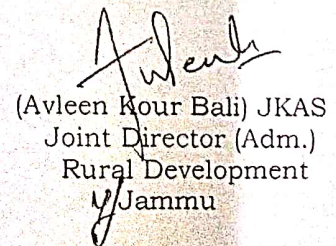 (Avleen Kour Bali) JKAS
Joint Director (Adm.)
Rural Development
Jammu